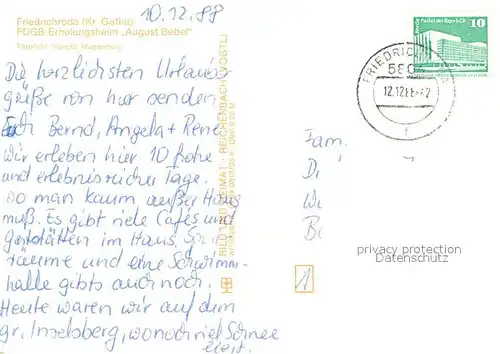 10.12.88
Friedrichroda (Kr. Gotha)
FDGB-Erholungsheim "August Bebel"
Die herzlichsten Urlaubs
grüße von hier senden
Euch Bernd, Angela + René
Wir erleben hier 10 frohe
und erlebnisreiche Tage.
wo man kaum außer Haus
muß. Es gibt viele Cafés und
Gaststätten im Haus,
räume und eine Schwimm-
halle gibts auch noch.
Heute waren wir auf dem
gr. Inselsberg, wo noch viel Schnee
liegt.
BILD UND HEIMAT · REICHENBACH (VOGTL)
10
FRIEDRICH
580
12.12.88
Fam.
D
W
B
privacy protection
Datenschutz